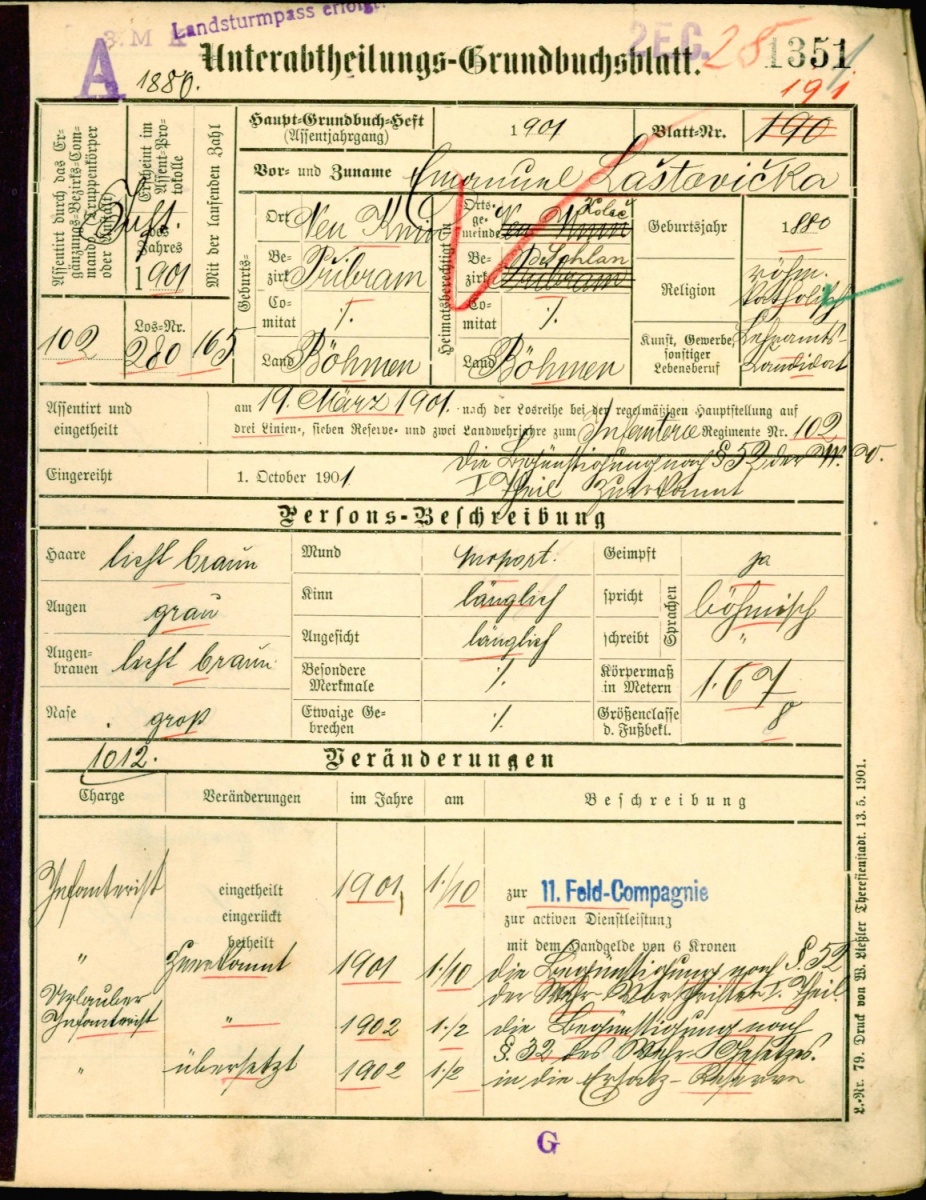 Landsturmpass erfolgt.
A
1880.
Unterabtheilungs-Grundbuchsblatt.
28
1351
191
Assentirt durch das Ergänzungs-Bezirks-Commando
102
Erscheint im Assent-Protokolle
des Jahres
1901
Los-Nr.
280
Mit der laufenden Zahl
165
Haupt-Grundbuch-Heft
(Assentjahrgang)
1901
Blatt-Nr.
190
Vor- und Zuname Emanuel Laštovička
Geburts-
Ort Neu Knin
Bezirk Přibram
Comitat ./.
Land Böhmen
Heimatsberechtigt in
Ortsgemeinde Neu Knin
Bezirk Přibram
Comitat ./.
Land Böhmen
Geburtsjahr 1880
Religion röm. katholisch
Kunst, Gewerbe, sonstiger Lebensberuf Lehramts-Kandidat
Assentirt und eingetheilt
am 19. März 1901 nach der Losreihe bei der regelmäßigen Hauptstellung auf
drei Linien-, sieben Reserve- und zwei Landwehrjahre zum Infanterie Regimente Nr. 102
Eingereiht
1. October 1901
die Begünstigung nach § 52 der W. V.
I Theil zuerkannt
Persons-Beschreibung
Haare licht braun
Augen grau
Augenbrauen licht braun
Nase groß
Mund proport.
Kinn länglich
Angesicht länglich
Besondere Merkmale ./.
Etwaige Gebrechen ./.
Geimpft ja
spricht
schreibt
Sprachen
böhmisch
"
Körpermaß in Metern 1.67
Größenclasse d. Fußbekl. 8
1012.
Veränderungen
Charge
Veränderungen
im Jahre
am
Beschreibung
Infanterist eingetheilt 1901 1./10 zur 11. Feld-Compagnie
eingerückt zur activen Dienstleistung
betheilt mit dem Handgelde von 6 Kronen
" Zuerkannt 1901 1./10 die Begünstigung nach § 52
der Wehr-Vorschriften I. Theil
Urlauber
Infanterist " 1902 1./2 die Begünstigung nach
§. 32 des Wehr Gesetzes.
" übersetzt 1902 1./2 in die Ersatz-Reserve
L.-Nr. 79. Druck von W. Ließler Theresienstadt. 13. 5. 1901.
G